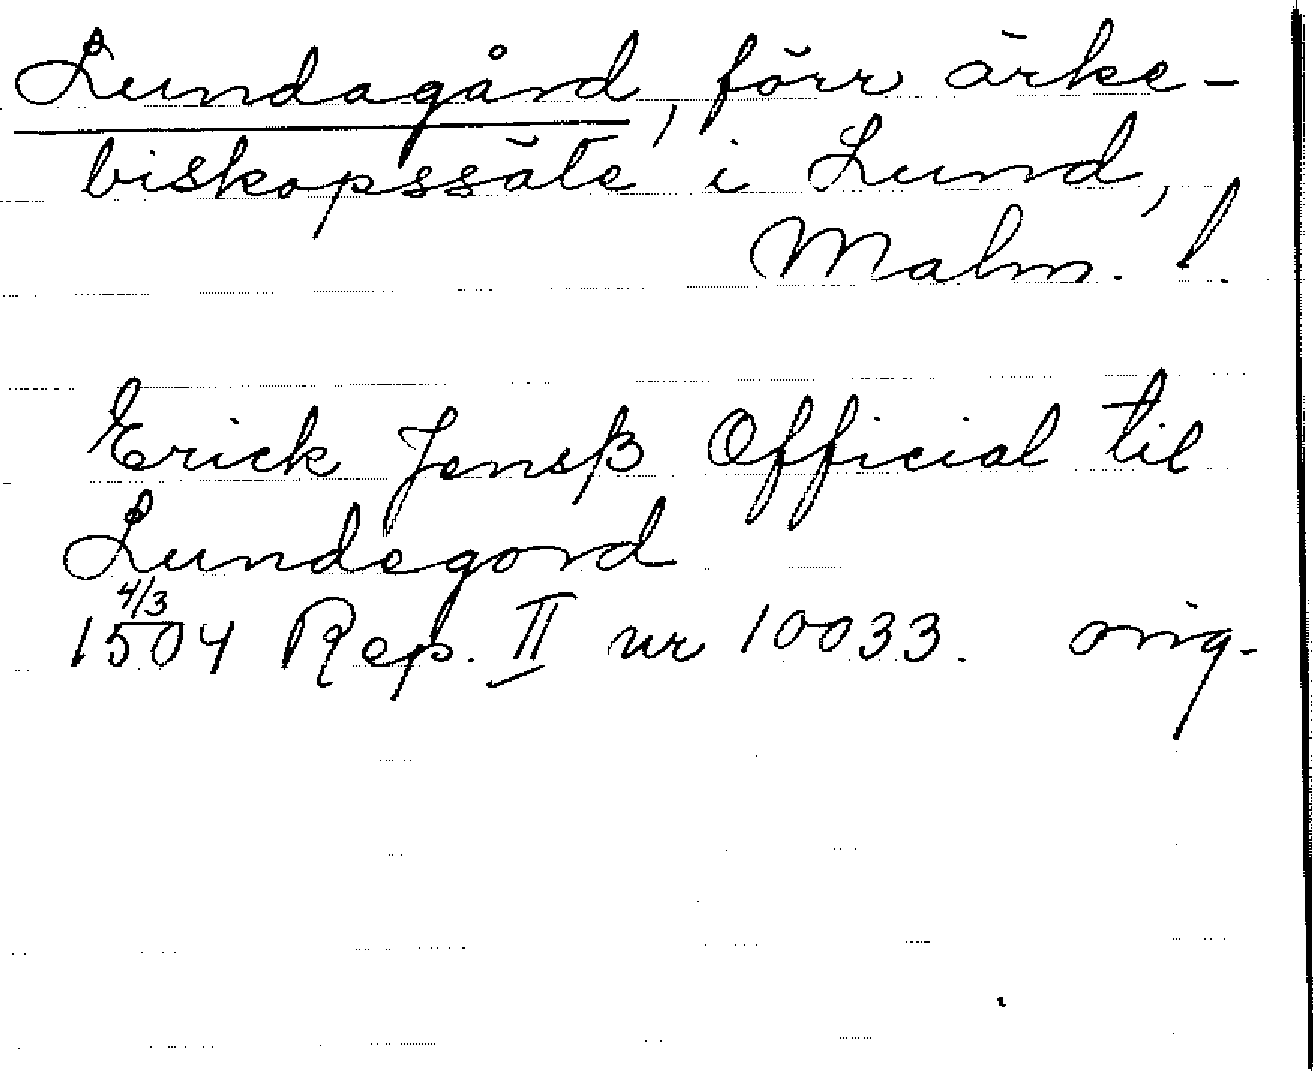 Lundagård, förr ärke-
biskopssäte i Lund,
Malm. l.
Erick Jensß Official til
Lundegord
4/3
1504 Rep. II nr 10033. orig.